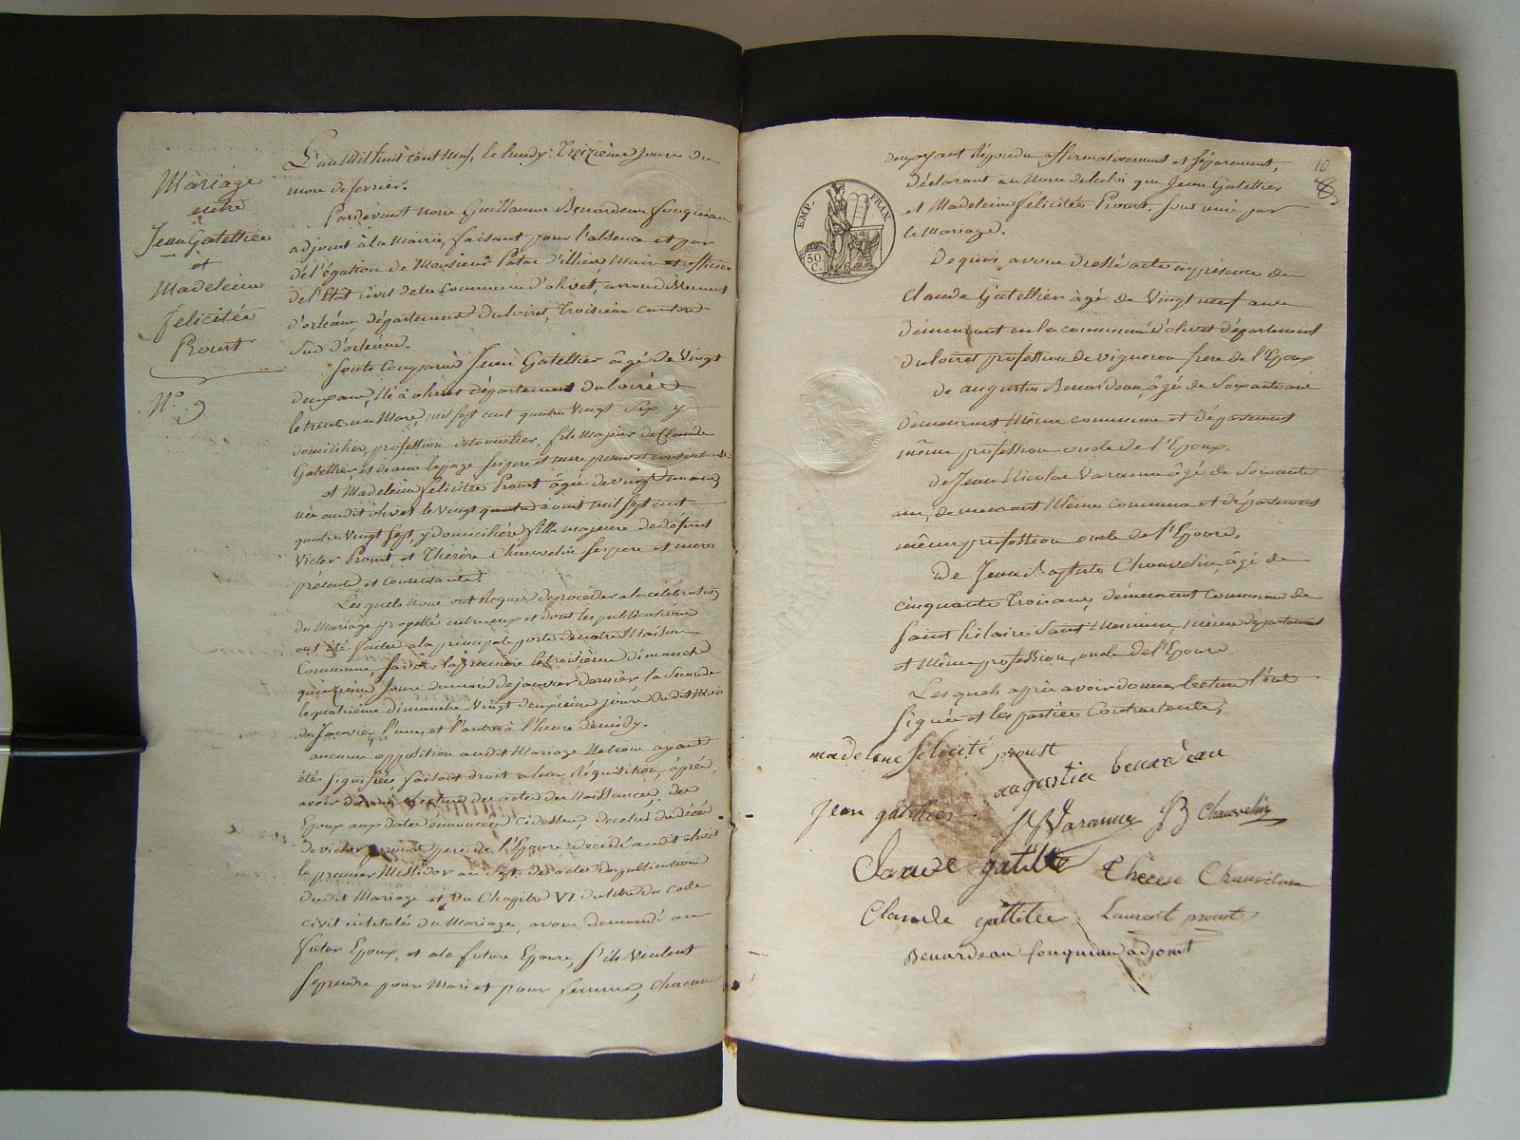 Mariage
entre
Jean Gatellier
et
Madeleine
Felicitée
Proust
N.o 9
L'an Mil huit cent neuf, le lundy Treizième jour du
mois de fevrier.
Pardevant nous Guillaume Benardeau fouqueau
adjoint à la Mairie, faisant pour l'absence et par
délégation de Monsieur Patas d'illiers Maire et officier
de l'Etat civil de la Commune d'olivet, arrondissement
d'orléans, département du loiret, troisième canton
Sud d'orleans.
Sont Comparus Jean Gatellier âgé de Vingt
deux ans, né à olivet département du loiret
le trente un Mars mil sept cent quatre Vingt Six y
domicilié, profession de fils Majeur de Claude
Gatellier et de anne lepage ses pere et mere presents et consentants
et Madeleine felicitée Proust âgée de vingt un ans
née audit olivet le vingt quatre aout mil sept cent
quatre Vingt Sept, y domiciliée, fille majeure de défunt
Victor Proust, et Therèse Chauvelin ses pere et mere
présente et consentante.
Lesquels nous ont Requis de procéder à la célébration
du Mariage projetté entr'eux et dont les publications
ont été faites à la principale porte de notre Maison
Commune, Savoir la premiere le troisième dimanche
quinzième jour du mois de janvier dernier la Seconde
le quatrième dimanche Vingt deuxième jour dudit Mois
de Janvier, l'une et l'autre à l'heure de midy.
aucune opposition audit Mariage Ne nous ayant
été signifiée, faisant droit à leur Réquisition, après
avoir donné lecture des actes de Naissances, des
Epoux aux dates énoncées cidessus, de celui du décès
de victor proust pere de l'Epouse décédé audit olivet
le premier Messidor an Sept, des actes de publications
dudit Mariage et Du Chapitre VI du titre du Code
civil intitulé du Mariage, avons demandé au
futur Epoux, et à la future Epouse, s'ils Veulent
se prendre pour Mari et pour femme, chacun
10
deux ayant répondu affirmativement et séparément,
Déclarons au Nom de la loi que Jean Gatellier
et Madeleine felicitée Proust sont unis par
le Mariage.
De quoi avons dressé acte en présence de
Claude Gatellier âgé de Vingt neuf ans
demeurant en la commune d'olivet département
du loiret profession de vigneron frere de l'Epoux
de augustin Benardeau, âgé de Soixante ans
demeurant Même commune et département
même profession oncle de l'Epoux.
de Jean Nicolas Varanne âgé de Soixante
ans, demeurant Même commune et département
même profession oncle de l'Epouse.
De Jean Baptiste Chauvelin, âgé de
cinquante trois ans, demeurant commune de
Saint hilaire Saint Mesmin, même département
et Même profession, oncle de l'Epouse
Lesquels après avoir donné lecture l'ont
Signé et les parties Contractantes,
EMP. FRAN.
50 C.
madelene felicité proust
augustin benardeau
Jean gatellier
JN Varanne
JB Chauvelin
Claude gatellie
Therese Chauvelin
Claude gattelie
Laurent proust
Benardeau fouqueau adjoint